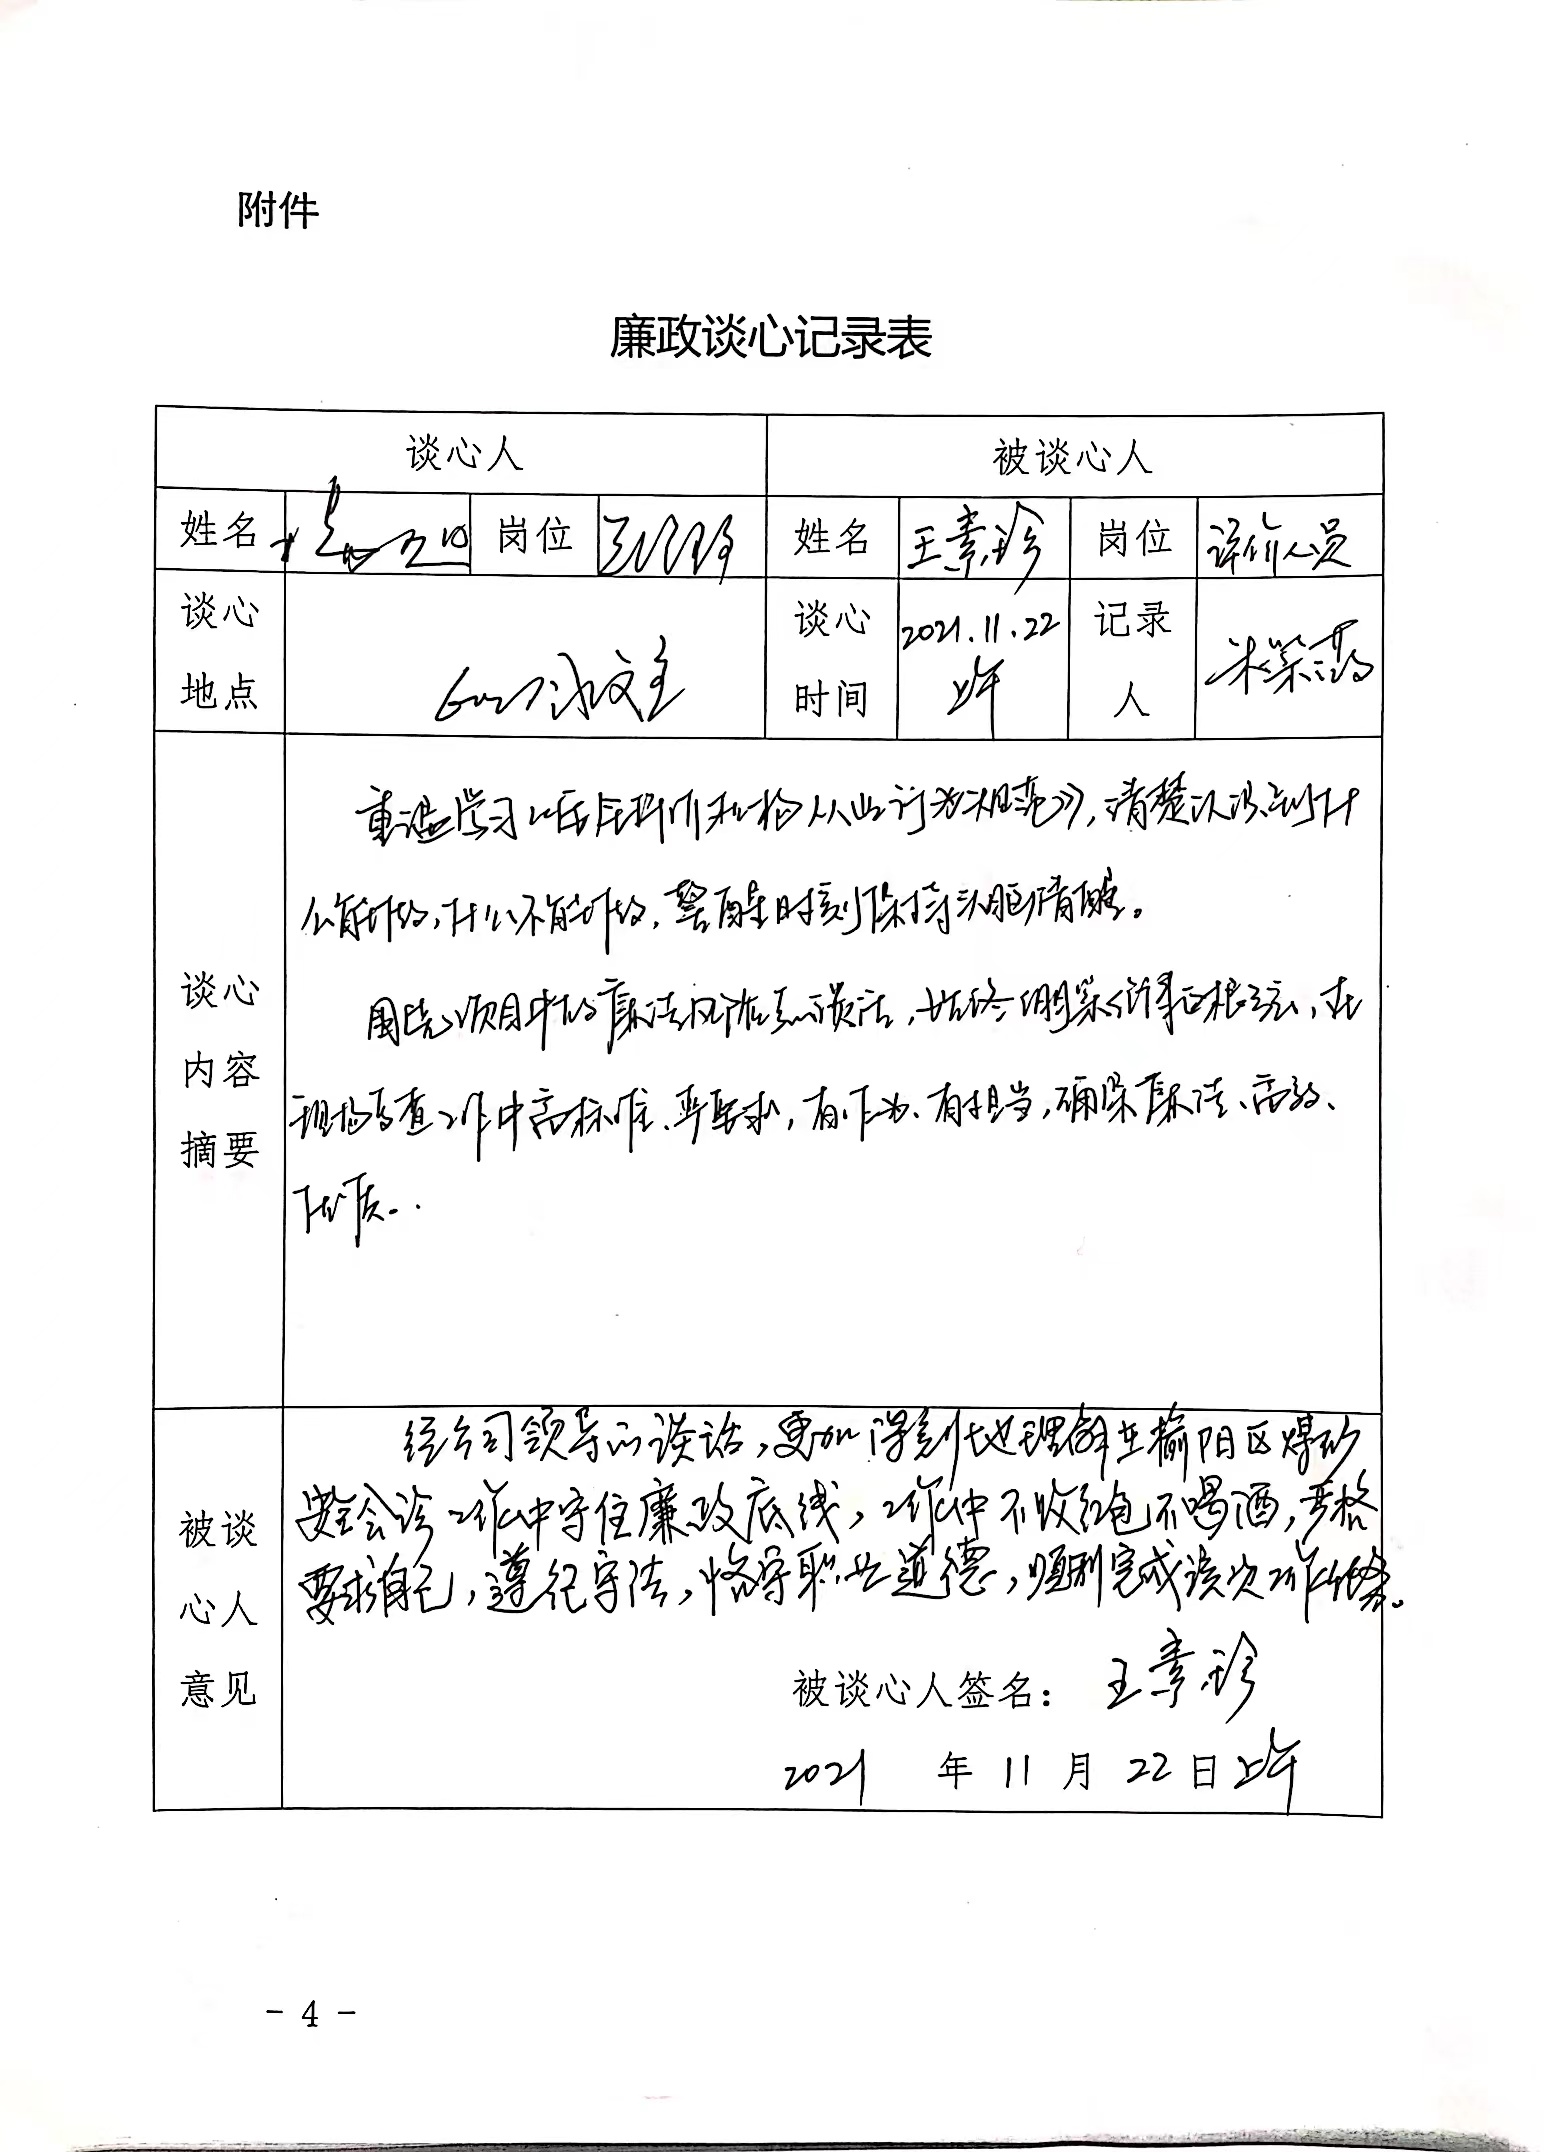 附件
廉政谈心记录表
谈心人 被谈心人
姓名 岗位 姓名 王素珍 岗位 评价人员
谈心地点 谈心时间 2021.11.22 上午 记录人
谈心内容摘要
重温学习《安全评价机构从业行为规范》,清楚认识到什
么能做,什么不能做,警醒时刻保持头脑清醒。
围绕项目中的廉洁风险点谈话,始终绷紧廉政根弦,在
现场检查工作中高标准、严要求,有作为、有担当,确保廉洁、高效、
优质。
被谈心人意见
经公司领导的谈话,更加深刻地理解在榆阳区煤矿
安全会诊工作中守住廉政底线,工作中不收红包不喝酒,严格
要求自己,遵纪守法,恪守职业道德,顺利完成该次工作任务。
被谈心人签名: 王素珍
2021 年 11 月 22 日上午
- 4 -